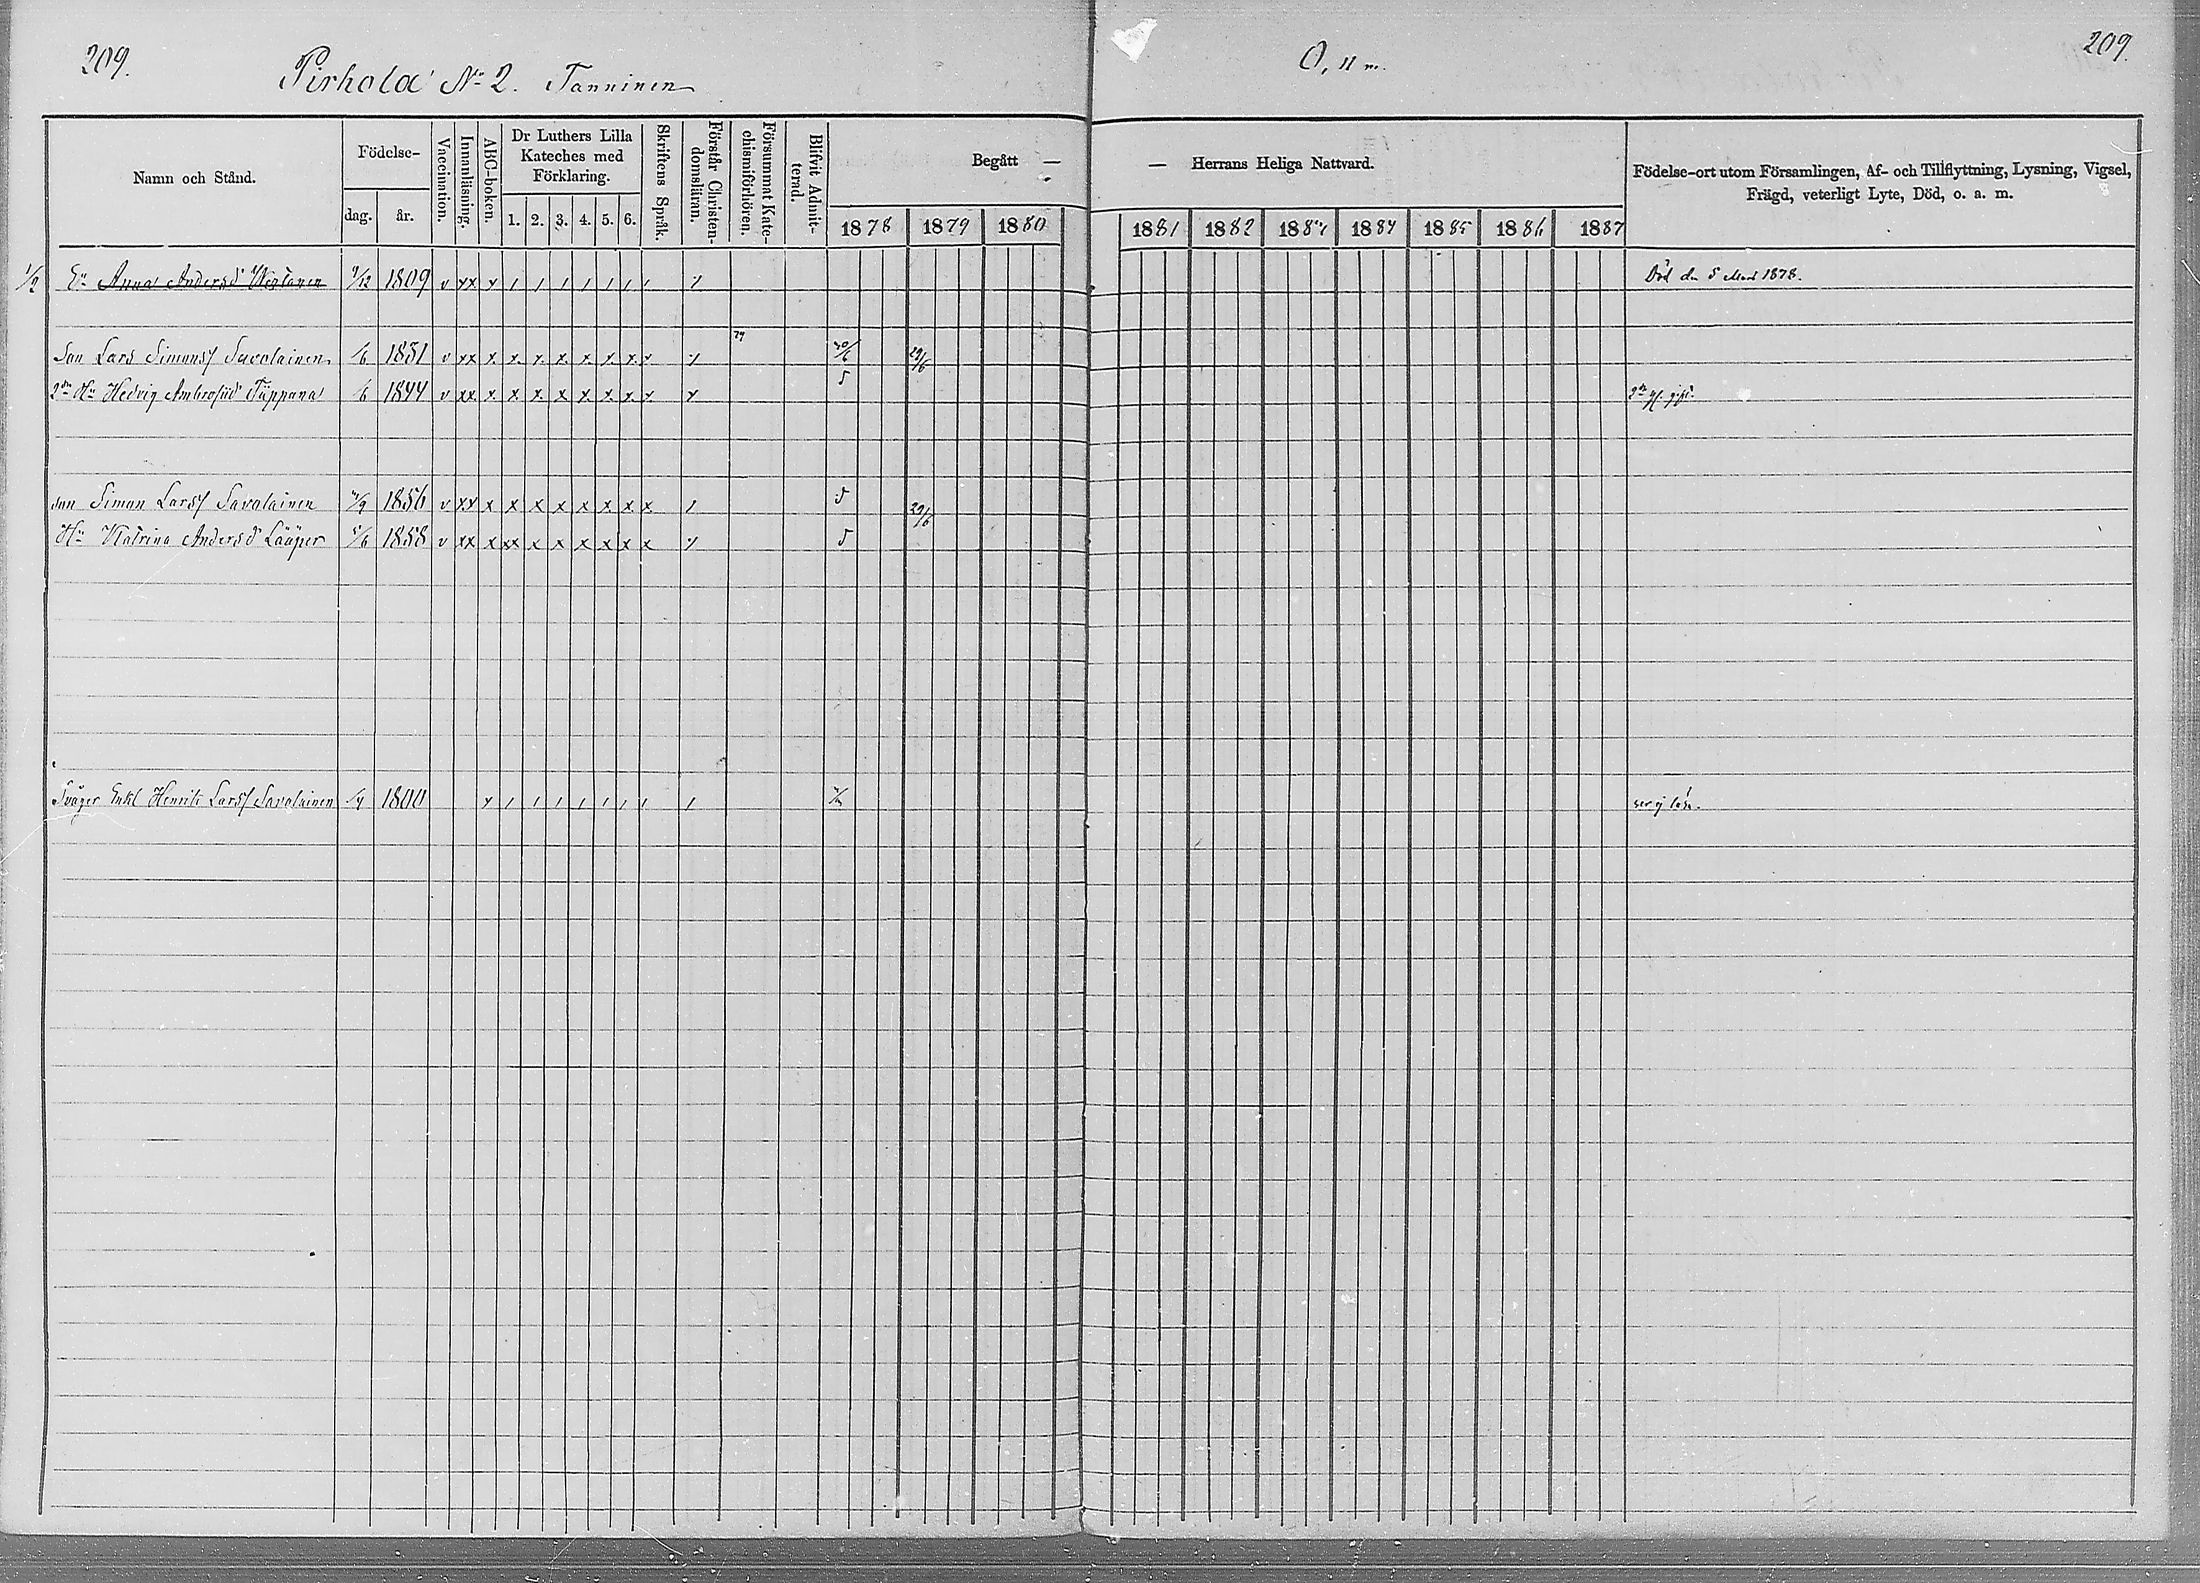 209. Pirhola No 2. Tanninen O, 11 m. 209.
Namn och Stånd.
Födelse-
dag. år.
Vaccination.
Innanläsning.
ABC-boken.
Dr Luthers Lilla
Kateches med
Förklaring.
1. 2. 3. 4. 5. 6.
Skriftens Språk.
Förstår Christen-
domsläran.
Försummat Kate-
chismiförhören.
Blifvit Admit-
terad.
Begått — — Herrans Heliga Nattvard.
1878 1879 1880 1881 1882 1883 1884 1885 1886 1887
Födelse-ort utom Församlingen, Af- och Tillflyttning, Lysning, Vigsel,
Frägd, veterligt Lyte, Död, o. a. m.
1/2 En Anna Andersd 9/12 1809 v xx x Död den 5 Mars 1878.
79
Son Lars Simonss Savolainen /6 1851 v xx x x x x x x x x 29/6
2dra Hu Hedvig Ambrosiid Täppana /6 1844 v xx x x x x x x x x x 5
son Simon Larss Savolainen /9 1856 v xx x x x x x x x x 5 29/6
Hu Katrina Andersd Lääper 5/6 1858 v xx x xx x x x x x x 5
Svåger Enkl Henrik Larss Savolainen /4 1800 x ser ej läsa.